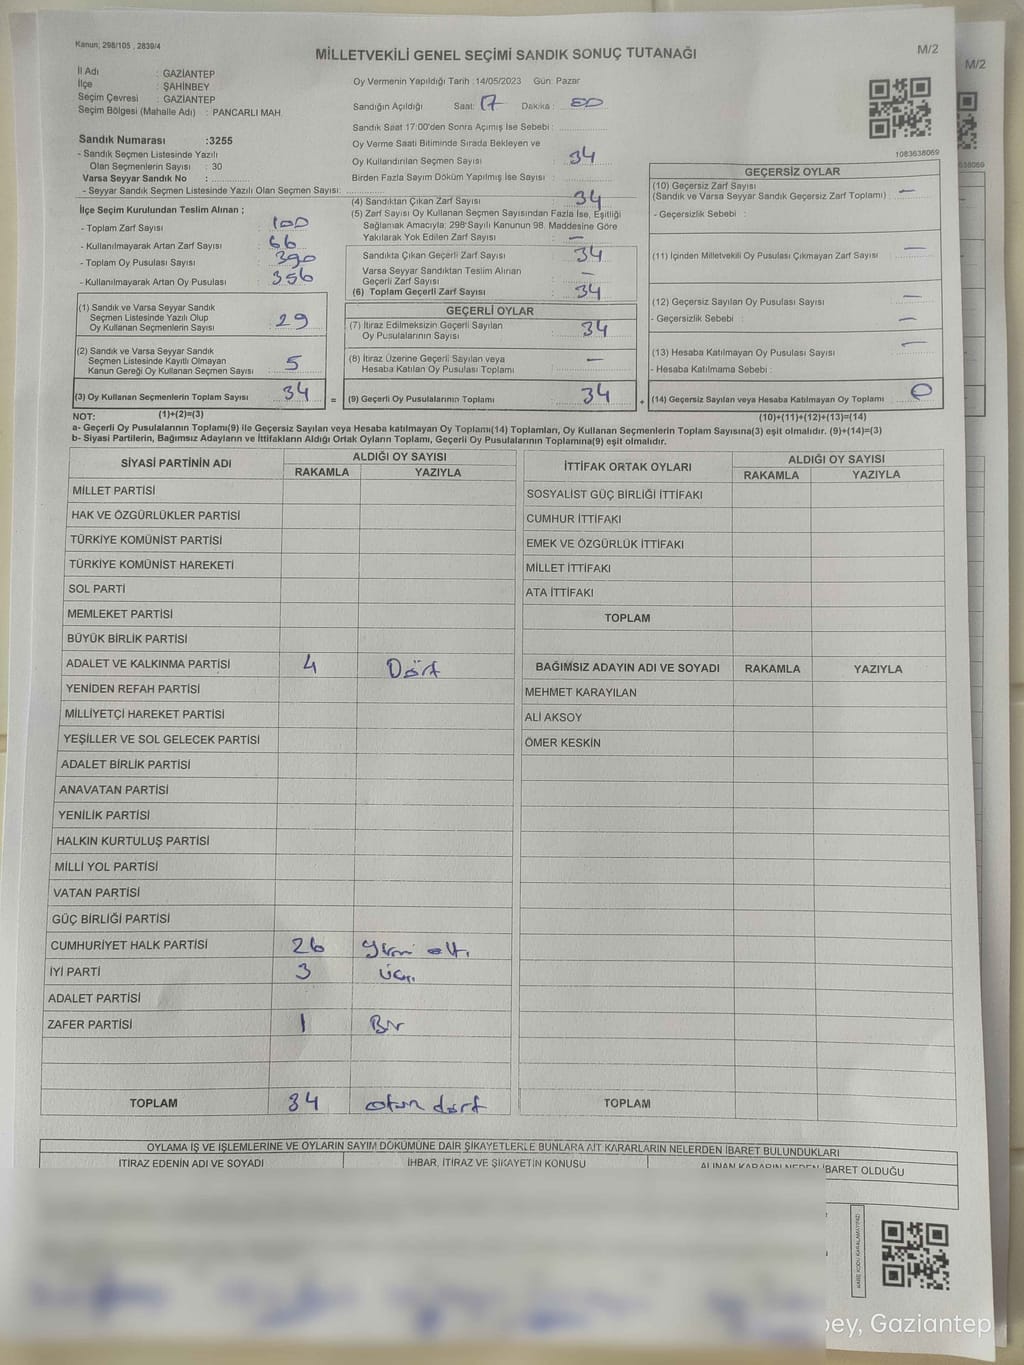 Kanun; 298/105 , 2839/4
M/2
M/2
MİLLETVEKİLİ GENEL SEÇİMİ SANDIK SONUÇ TUTANAĞI
İl Adı : GAZİANTEP
İlçe : ŞAHİNBEY
Seçim Çevresi : GAZİANTEP
Seçim Bölgesi (Mahalle Adı) : PANCARLI MAH.
Sandık Numarası :3255
- Sandık Seçmen Listesinde Yazılı
Olan Seçmenlerin Sayısı : 30
Varsa Seyyar Sandık No :
- Seyyar Sandık Seçmen Listesinde Yazılı Olan Seçmen Sayısı:
Oy Vermenin Yapıldığı Tarih :14/05/2023 Gün: Pazar
Sandığın Açıldığı Saat: 17 Dakika :
Sandık Saat 17:00'den Sonra Açımış İse Sebebi :
Oy Verme Saati Bitiminde Sırada Bekleyen ve
Oy Kullandırılan Seçmen Sayısı : 34
Birden Fazla Sayım Döküm Yapılmış İse Sayısı :
1083638069
İlçe Seçim Kurulundan Teslim Alınan ;
- Toplam Zarf Sayısı : 100
- Kullanılmayarak Artan Zarf Sayısı : 66
- Toplam Oy Pusulası Sayısı : 390
- Kullanılmayarak Artan Oy Pusulası : 356
(1) Sandık ve Varsa Seyyar Sandık
Seçmen Listesinde Yazılı Olup
Oy Kullanan Seçmenlerin Sayısı : 29
(2) Sandık ve Varsa Seyyar Sandık
Seçmen Listesinde Kayıtlı Olmayan
Kanun Gereği Oy Kullanan Seçmen Sayısı : 5
(3) Oy Kullanan Seçmenlerin Toplam Sayısı : 34 =
(4) Sandıktan Çıkan Zarf Sayısı : 34
(5) Zarf Sayısı Oy Kullanan Seçmen Sayısından Fazla İse, Eşitliği
Sağlamak Amacıyla; 298 Sayılı Kanunun 98. Maddesine Göre
Yakılarak Yok Edilen Zarf Sayısı : —
Sandıkta Çıkan Geçerli Zarf Sayısı : 34
Varsa Seyyar Sandıktan Teslim Alınan
Geçerli Zarf Sayısı : —
(6) Toplam Geçerli Zarf Sayısı : 34
GEÇERLİ OYLAR
(7) İtiraz Edilmeksizin Geçerli Sayılan
Oy Pusulalarının Sayısı : 34
(8) İtiraz Üzerine Geçerli Sayılan veya
Hesaba Katılan Oy Pusulası Toplamı : —
(9) Geçerli Oy Pusulalarının Toplamı : 34 +
GEÇERSİZ OYLAR
(10) Geçersiz Zarf Sayısı
(Sandık ve Varsa Seyyar Sandık Geçersiz Zarf Toplamı) : —
- Geçersizlik Sebebi :
(11) İçinden Milletvekili Oy Pusulası Çıkmayan Zarf Sayısı : —
(12) Geçersiz Sayılan Oy Pusulası Sayısı : —
- Geçersizlik Sebebi : —
(13) Hesaba Katılmayan Oy Pusulası Sayısı : —
- Hesaba Katılmama Sebebi :
(14) Geçersiz Sayılan veya Hesaba Katılmayan Oy Toplamı : 0
NOT: (1)+(2)=(3) (10)+(11)+(12)+(13)=(14)
a- Geçerli Oy Pusulalarının Toplamı(9) ile Geçersiz Sayılan veya Hesaba katılmayan Oy Toplamı(14) Toplamları, Oy Kullanan Seçmenlerin Toplam Sayısına(3) eşit olmalıdır. (9)+(14)=(3)
b- Siyasi Partilerin, Bağımsız Adayların ve İttifakların Aldığı Ortak Oyların Toplamı, Geçerli Oy Pusulalarının Toplamına(9) eşit olmalıdır.
SİYASİ PARTİNİN ADI ALDIĞI OY SAYISI
RAKAMLA YAZIYLA
MİLLET PARTİSİ
HAK VE ÖZGÜRLÜKLER PARTİSİ
TÜRKİYE KOMÜNİST PARTİSİ
TÜRKİYE KOMÜNİST HAREKETİ
SOL PARTİ
MEMLEKET PARTİSİ
BÜYÜK BİRLİK PARTİSİ
ADALET VE KALKINMA PARTİSİ 4 Dört
YENİDEN REFAH PARTİSİ
MİLLİYETÇİ HAREKET PARTİSİ
YEŞİLLER VE SOL GELECEK PARTİSİ
ADALET BİRLİK PARTİSİ
ANAVATAN PARTİSİ
YENİLİK PARTİSİ
HALKIN KURTULUŞ PARTİSİ
MİLLİ YOL PARTİSİ
VATAN PARTİSİ
GÜÇ BİRLİĞİ PARTİSİ
CUMHURİYET HALK PARTİSİ 26 Yirmi altı
İYİ PARTİ 3 üç
ADALET PARTİSİ
ZAFER PARTİSİ 1 Bir
TOPLAM 34 otuz dört
İTTİFAK ORTAK OYLARI ALDIĞI OY SAYISI
RAKAMLA YAZIYLA
SOSYALİST GÜÇ BİRLİĞİ İTTİFAKI
CUMHUR İTTİFAKI
EMEK VE ÖZGÜRLÜK İTTİFAKI
MİLLET İTTİFAKI
ATA İTTİFAKI
TOPLAM
BAĞIMSIZ ADAYIN ADI VE SOYADI RAKAMLA YAZIYLA
MEHMET KARAYILAN
ALİ AKSOY
ÖMER KESKİN
TOPLAM
OYLAMA İŞ VE İŞLEMLERİNE VE OYLARIN SAYIM DÖKÜMÜNE DAİR ŞİKAYETLERLE BUNLARA AİT KARARLARIN NELERDEN İBARET BULUNDUKLARI
İTİRAZ EDENİN ADI VE SOYADI İHBAR, İTİRAZ VE ŞİKAYETİN KONUSU ALINAN KARARIN NEDEN İBARET OLDUĞU
bey, Gaziantep